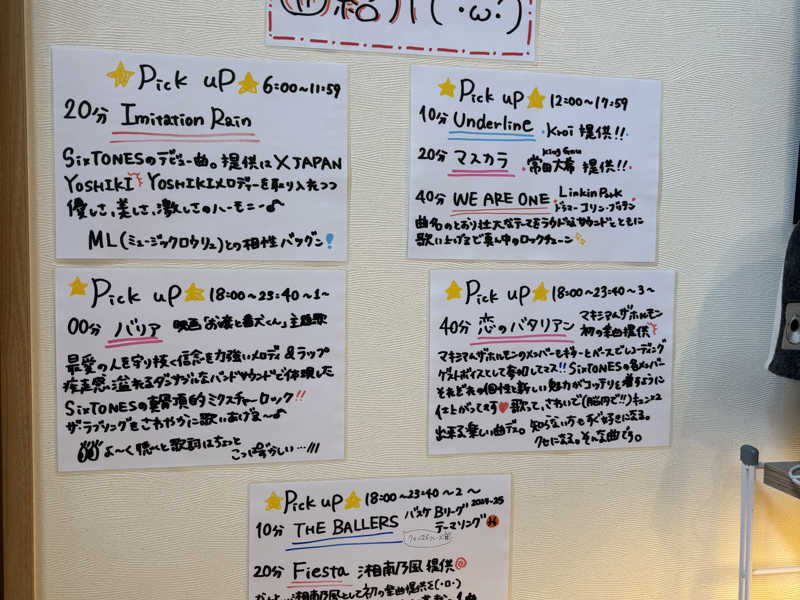 紹介(・ω・)
☆Pick up☆ 6:00〜11:59
20分 Imitation Rain
SixTONESのデビュー曲。提供はX JAPAN
YOSHIKI YOSHIKIメロディーを取り入れつつ
優しさ、美しさ、激しさのハーモニー♪
ML(ミュージックロウリュ)との相性バツグン!
☆Pick up☆ 12:00〜17:59
10分 Underline ・Kroi 提供!!
20分 マスカラ ・King Gnu 常田大希 提供!!
40分 WE ARE ONE ・Linkin Park
ドラマー コリン・ブリテン
曲名のとおり壮大なテーマをラウドなサウンドとともに
歌い上げるど真ん中のロックチューン
☆Pick up☆ 18:00〜23:40〜1〜
00分 バリア 映画「お嬢と番犬くん」主題歌
最愛の人を守り抜く信念を力強いメロディ&ラップ
疾走感に溢れるダイナミックなバンドサウンドで体現した
SixTONESの真骨頂的ミクスチャーロック!!
ザ・ラブソングをさわやかに歌いあげま〜す♪
よ〜く聴くと歌詞はちょっと
こっぱずかしい…///
☆Pick up☆ 18:00〜23:40〜3〜
40分 恋のバタリアン マキシマムザホルモン
初の楽曲提供
マキシマムザホルモンのメンバーもギターとベースでレコーディング
ゲストボイスとして参加してマス!! SixTONESの各メンバー
それぞれの個性と新しい魅力がコッテリと増すように
仕上がってます♥歌って、さわいで(脳内で!!)キュン×2
出来る楽しい曲デス。知らない方もすぐ好きになる。
クセになる。そんな曲です。
☆Pick up☆ 18:00〜23:40〜2〜
10分 THE BALLERS バスケ Bリーグ 2024-25
テーマソング
20分 Fiesta 湘南乃風 提供
湘南乃風として初の楽曲提供を(・o・)